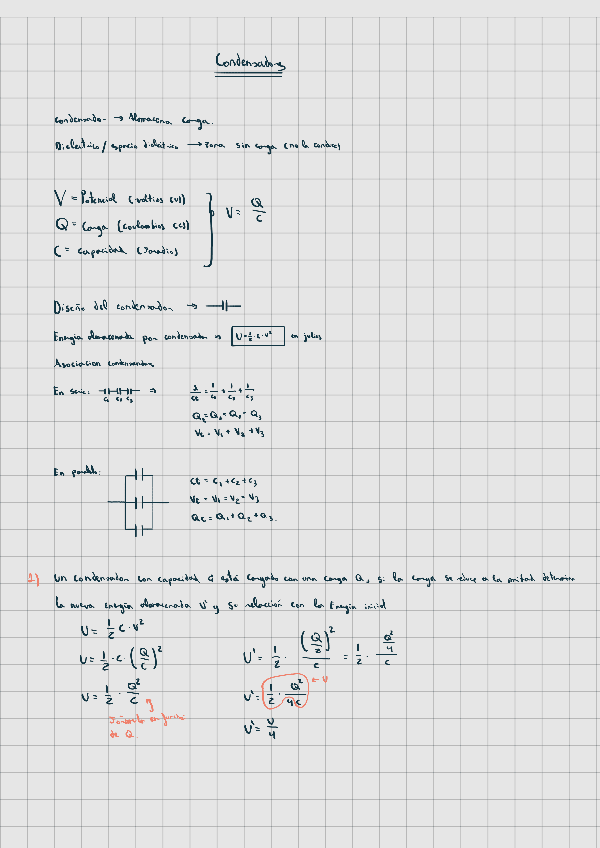 Condensadores
Condensador → Almacena carga.
Dieléctrico / espacio dieléctrico → Zona sin carga (no la conduce)
V = Potencial (voltios (V))
Q = Carga (coulombios (C))
C = capacidad (Faradios)
V = Q/C
Diseño del condensador →
Energía almacenada por condensador ⇒ U = 1/2 · C · V² en julios
Asociacion condensadores
En serie: C₁ C₂ C₃ ⇒ 1/Ct = 1/C₁ + 1/C₂ + 1/C₃
Qt = Q₁ = Q₂ = Q₃
Vt = V₁ + V₂ + V₃
En paralelo: Ct = C₁ + C₂ + C₃
Vt = V₁ = V₂ = V₃
Qt = Q₁ + Q₂ + Q₃.
1) Un condensador con capacidad C está cargado con una carga Q, si la carga se reduce a la mitad determina
la nueva energía almacenada U' y su relación con la Energía inicial
U = 1/2 C · V²
U = 1/2 · C · (Q/C)²
U = 1/2 · Q²/C
en función
de Q
U' = 1/2 · (Q/2)²/C = 1/2 · Q²/4/C
U' = 1/2 · Q²/4C ← U
U' = U/4